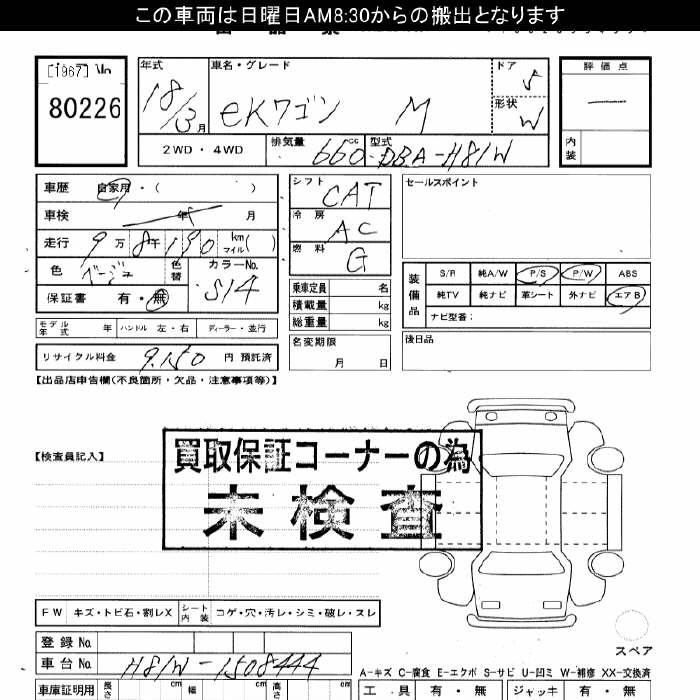 この車両は日曜日AM8:30からの搬出となります
[1967]
80226
年式 18/3月
車名・グレード eKワゴン M
ドア 5
形状 W
評価点
内装
2WD・4WD
排気量 660cc
型式 DBA-H81W
車歴 自家用・( )
車検 年 月
走行 9万8千190km マイル( )
色 ベージュ 色替 カラーNo. S14
保証書 有・無
モデル年式 年 ハンドル 左・右 ディーラー・並行
リサイクル料金 9,150 円 預託済
シフト CAT
冷房 AC
燃料 G
乗車定員 名
積載量 kg
総重量 kg
名変期限 月 日
セールスポイント
装備品 S/R 純A/W P/S P/W ABS
純TV 純ナビ 革シート 外ナビ エアB
ナビ型番:
後日品
【出品店申告欄(不良箇所・欠品・注意事項等)】
【検査員記入】
買取保証コーナーの為
未検査
FW キズ・トビ石・割レX シート内装 コゲ・穴・汚レ・シミ・破レ・スレ
登録No
車台No H81W-1508444
車庫証明用 長さ cm 幅 cm 高さ cm
スペア
A-キズ C-腐食 E-エクボ S-サビ U-凹ミ W-補修 XX-交換済
工具 有・無 ジャッキ 有・無